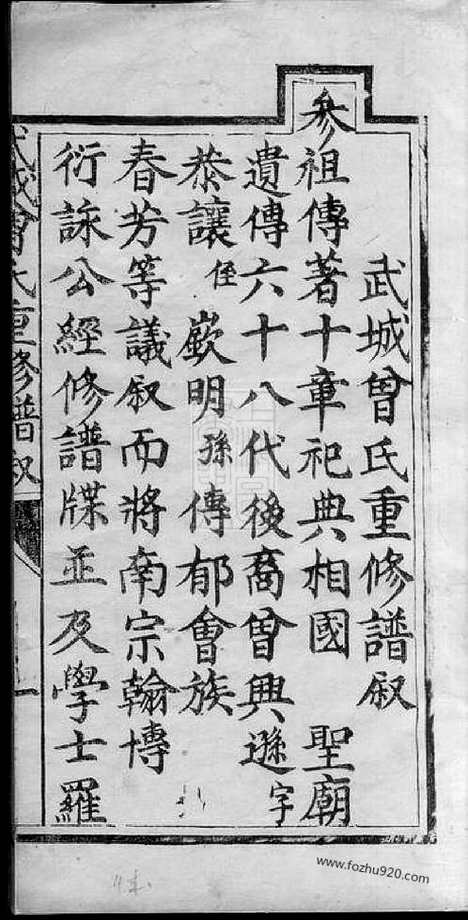 武城曾氏重修譜叙
參祖傳著十章祀典相國 聖廟
遺傳六十八代後裔曾興遜字
恭讓侄嶔明孫傳郁會族
春芳等議叙而將南宗翰博
衍詠公經修譜牒並及學士羅
武城曾氏重修譜叙
一
www.fozhu920.com